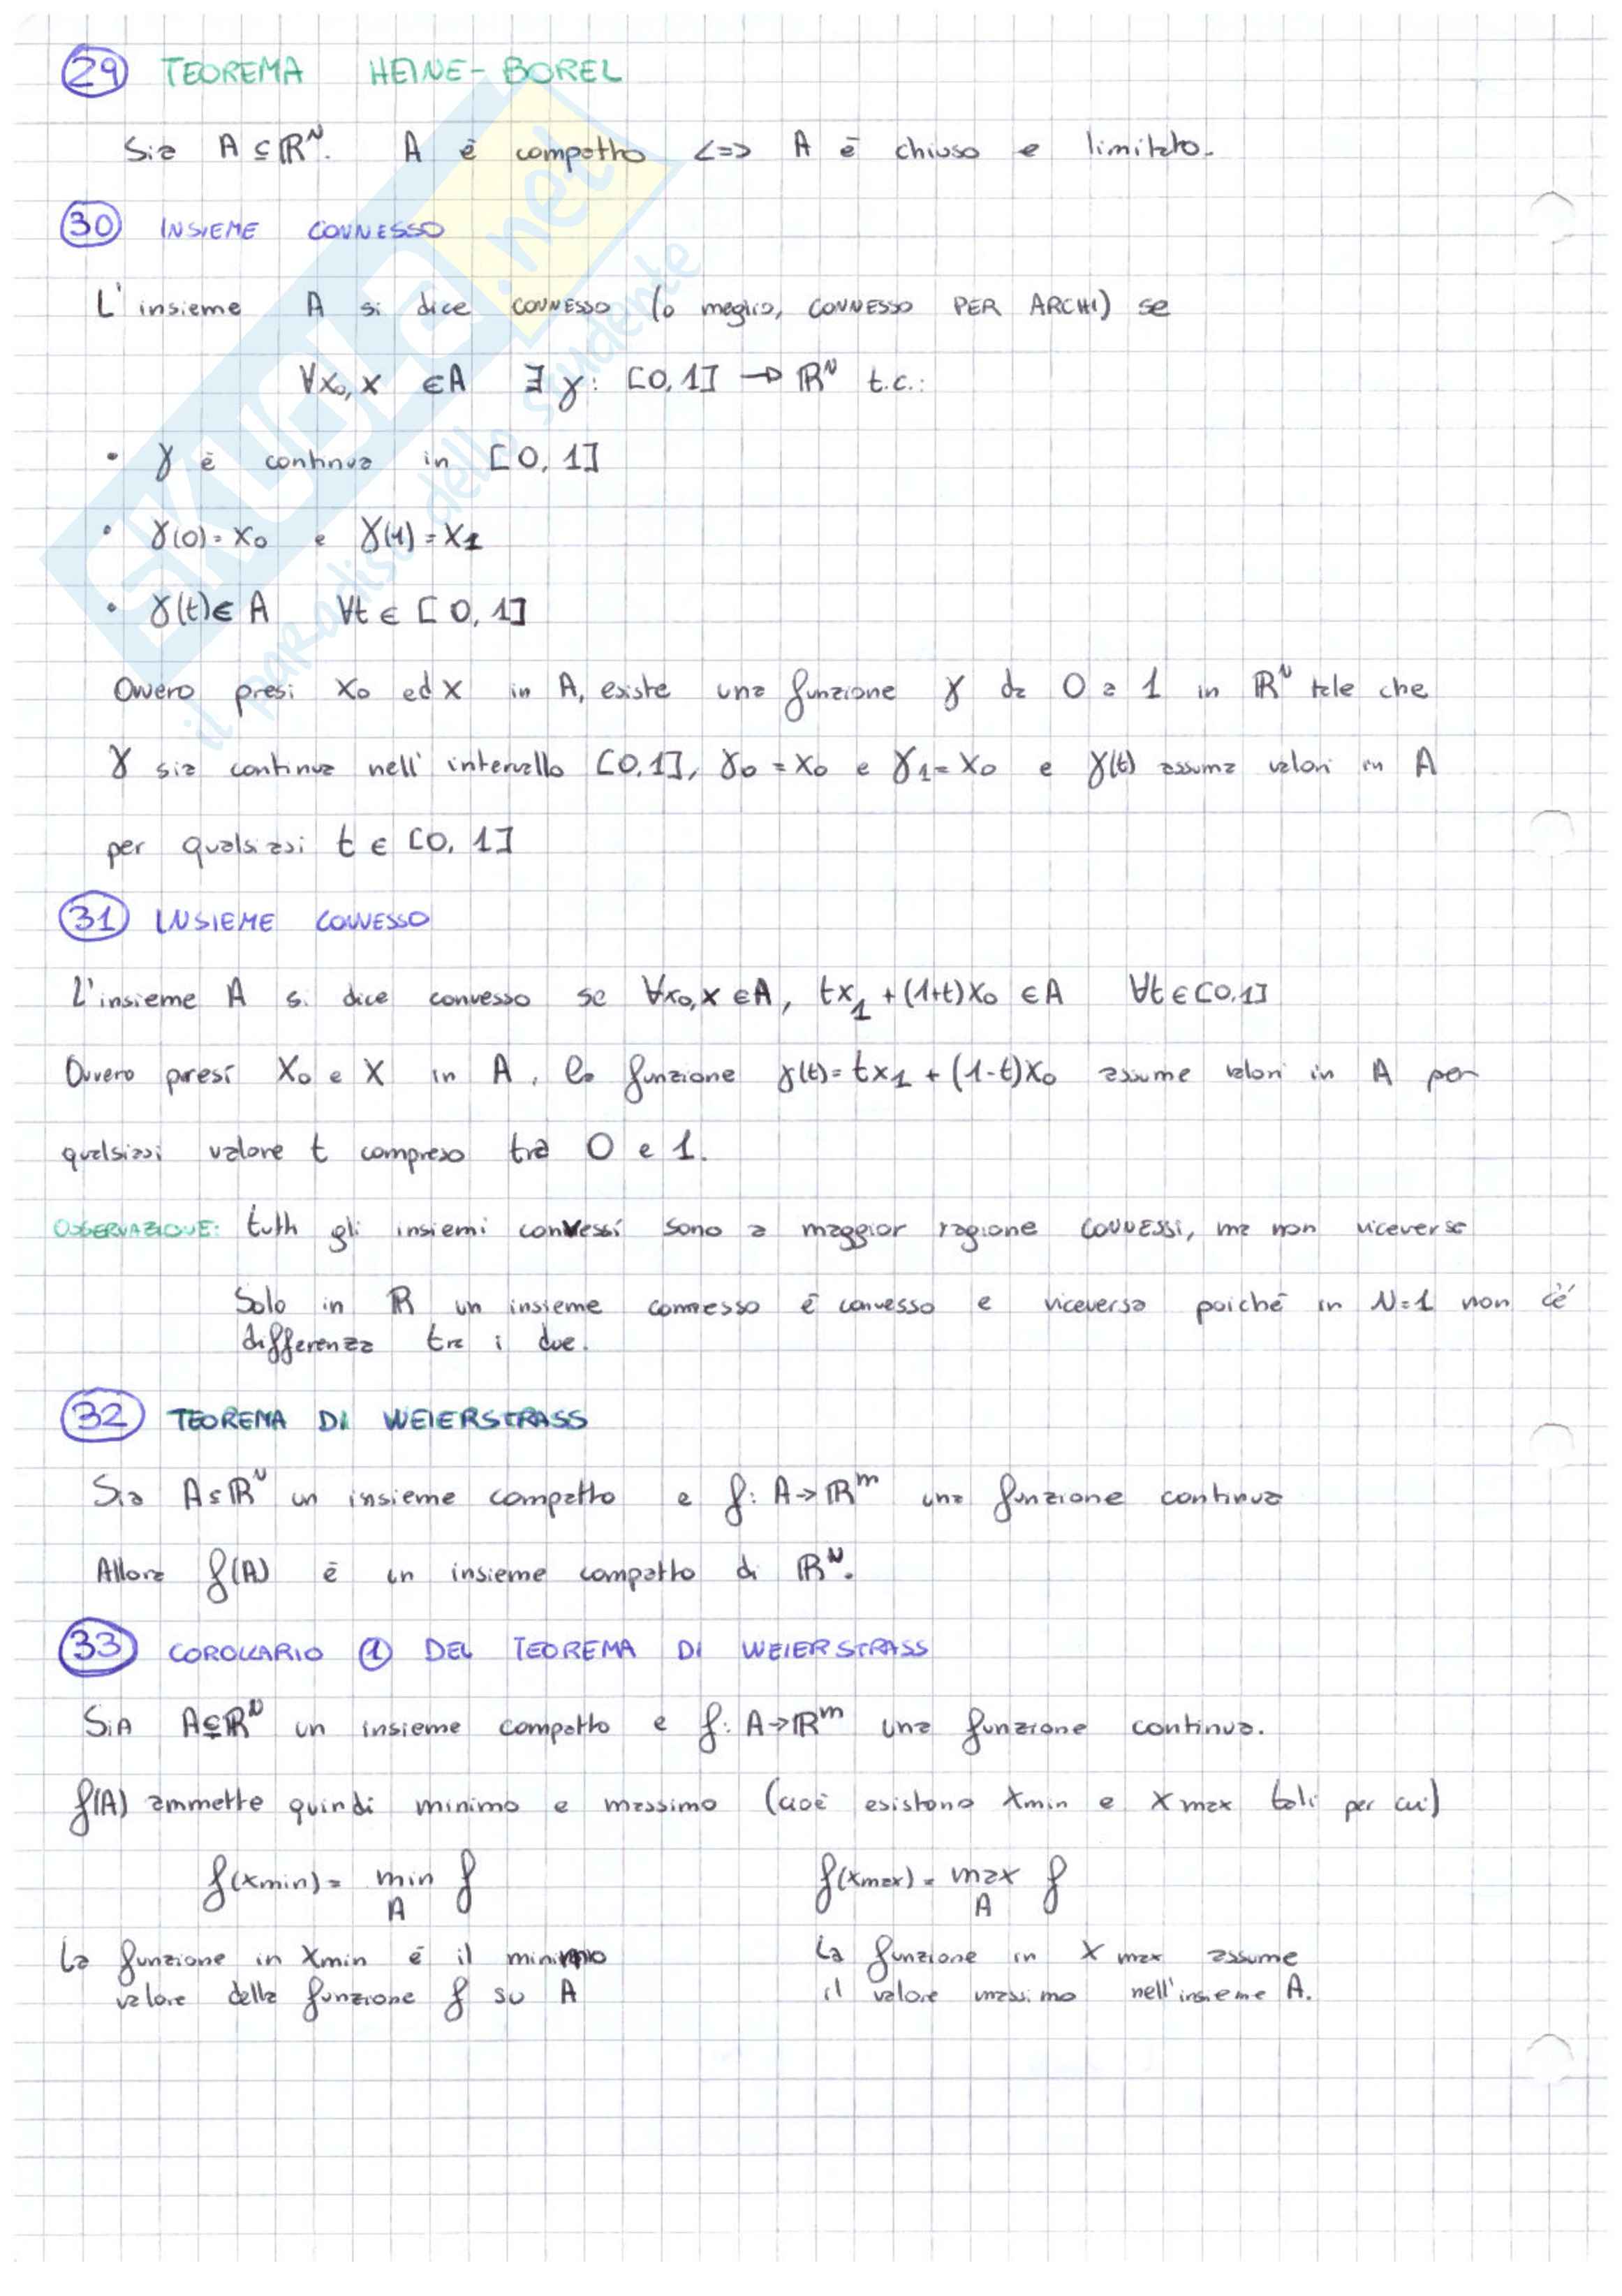 29 TEOREMA HEINE-BOREL
Sia A ⊆ ℝᴺ. A è compatto <=> A è chiuso e limitato.
30 INSIEME CONNESSO
L'insieme A si dice CONNESSO (o meglio, CONNESSO PER ARCHI) se
∀x₀,x ∈A ∃ γ: [0,1] → ℝᴺ t.c.:
• γ è continua in [0,1]
• γ(0)=x₀ e γ(1)=x₁
• γ(t)∈A ∀t ∈ [0,1]
Ovvero presi x₀ ed x in A, esiste una funzione γ da 0 a 1 in ℝᴺ tale che
γ sia continua nell'intervallo [0,1], γ₀=x₀ e γ₁=x₀ e γ(t) assuma valori in A
per qualsiasi t ∈ [0,1]
31 INSIEME CONVESSO
L'insieme A si dice convesso se ∀x₀,x ∈A, tx₁ + (1+t)x₀ ∈A ∀t∈[0,1]
Ovvero presi x₀ e x in A, la funzione γ(t)=tx₁ + (1-t)x₀ assume valori in A per
qualsiasi valore t compreso tra 0 e 1.
OSSERVAZIONE: tutti gli insiemi convessi sono a maggior ragione CONNESSI, ma non viceversa
Solo in ℝ un insieme connesso è convesso e viceversa poiché in N=1 non c'è
differenza tra i due.
32 TEOREMA DI WEIERSTRASS
Sia A⊆ℝᴺ un insieme compatto e f: A→ℝᵐ una funzione continua
Allora f(A) è un insieme compatto di ℝᴺ.
33 COROLLARIO ① DEL TEOREMA DI WEIERSTRASS
SiA A⊆ℝᴺ un insieme compatto e f: A→ℝᵐ una funzione continua.
f(A) ammette quindi minimo e massimo (cioè esistono xmin e xmax tali per cui)
f(xmin)= min f f(xmax)= max f
A A
La funzione in xmin è il minimo La funzione in xmax assume
valore della funzione f su A il valore massimo nell'insieme A.
SKUOLA.net
il paradiso dello studente